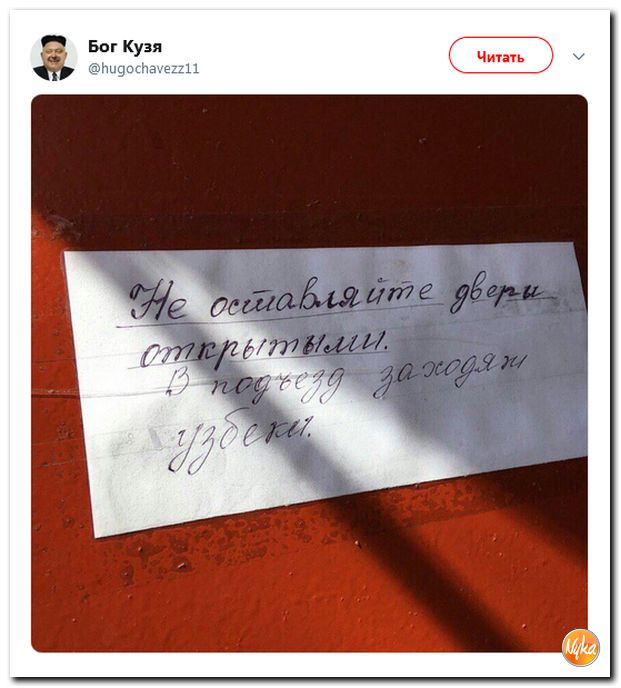 Бог Кузя
@hugochavezz11
Читать
Не оставляйте двери
открытыми.
В подъезд заходят
узбеки.
Nyka